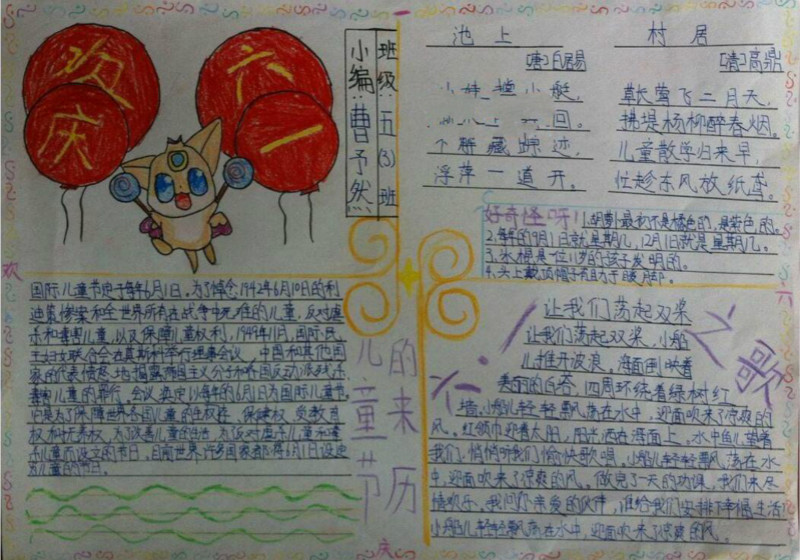 欢庆
六一
班级 五(3)班
小编 曹予然
池上
[唐]白居易
小 艇,
回。
藏踪迹,
浮萍一道开。
村居
[清]高鼎
草长莺飞二月天,
拂堤杨柳醉春烟。
儿童散学归来早,
忙趁东风放纸鸢。
好奇怪呀! 1.胡萝卜最初不是橘色的,是紫色的。
2.每年的9月1日就是星期几,12月1日就是星期几。
3.冰棍是一位11岁的孩子发明的。
4.头上戴顶帽子有助于暖
国际儿童节定于每年6月1日。为了悼念1942年6月10日的利
迪策惨案和全世界所有在战争中死难的儿童,反对虐
杀和毒害儿童,以及保障儿童权利,1949年11月,国际民
主妇女联合会在莫斯科举行理事会议,中国和其他国
家的代表愤怒地揭露
毒害儿童的罪行。会议决定以每年的6月1日为国际儿童节。
它是为了保障世界各国儿童的生存权、保健权、受教育
权和抚养权,为了改善儿童的生活,为了反对虐杀儿童和毒
杀儿童而设立的节日,目前世界许多国家都将6月1日设定
为儿童的节日。
儿童节的来历
六一之歌
让我们荡起双桨
让我们荡起双桨,小船
儿推开波浪。海面倒映着
美丽的白塔,四周环绕着绿树红
墙。小船儿轻轻飘荡在水中,迎面吹来了凉爽的
风。红领巾迎着太阳,阳光洒在海面上,水中鱼儿望着
我们,悄悄听我们愉快歌唱。小船儿轻轻飘荡在水
中,迎面吹来了凉爽的风。做完了一天的功课,我们来尽
情欢乐,我问你亲爱的伙伴,谁给我们安排下幸福生活?
小船儿轻轻飘荡在水中,迎面吹来了凉爽的风。
欢
六
庆